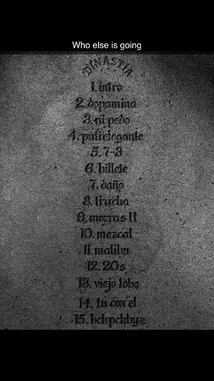 Who else is going
DINASTÍA
1. intro
2. dopamina
3. ni pedo
4. putielegante
5. 7-3
6. billete
7. daño
8. trucha
9. morras II
10. mezcal
11. malibu
12. 20s
13. viejo lobo
14. tu con él
15. belepddbye